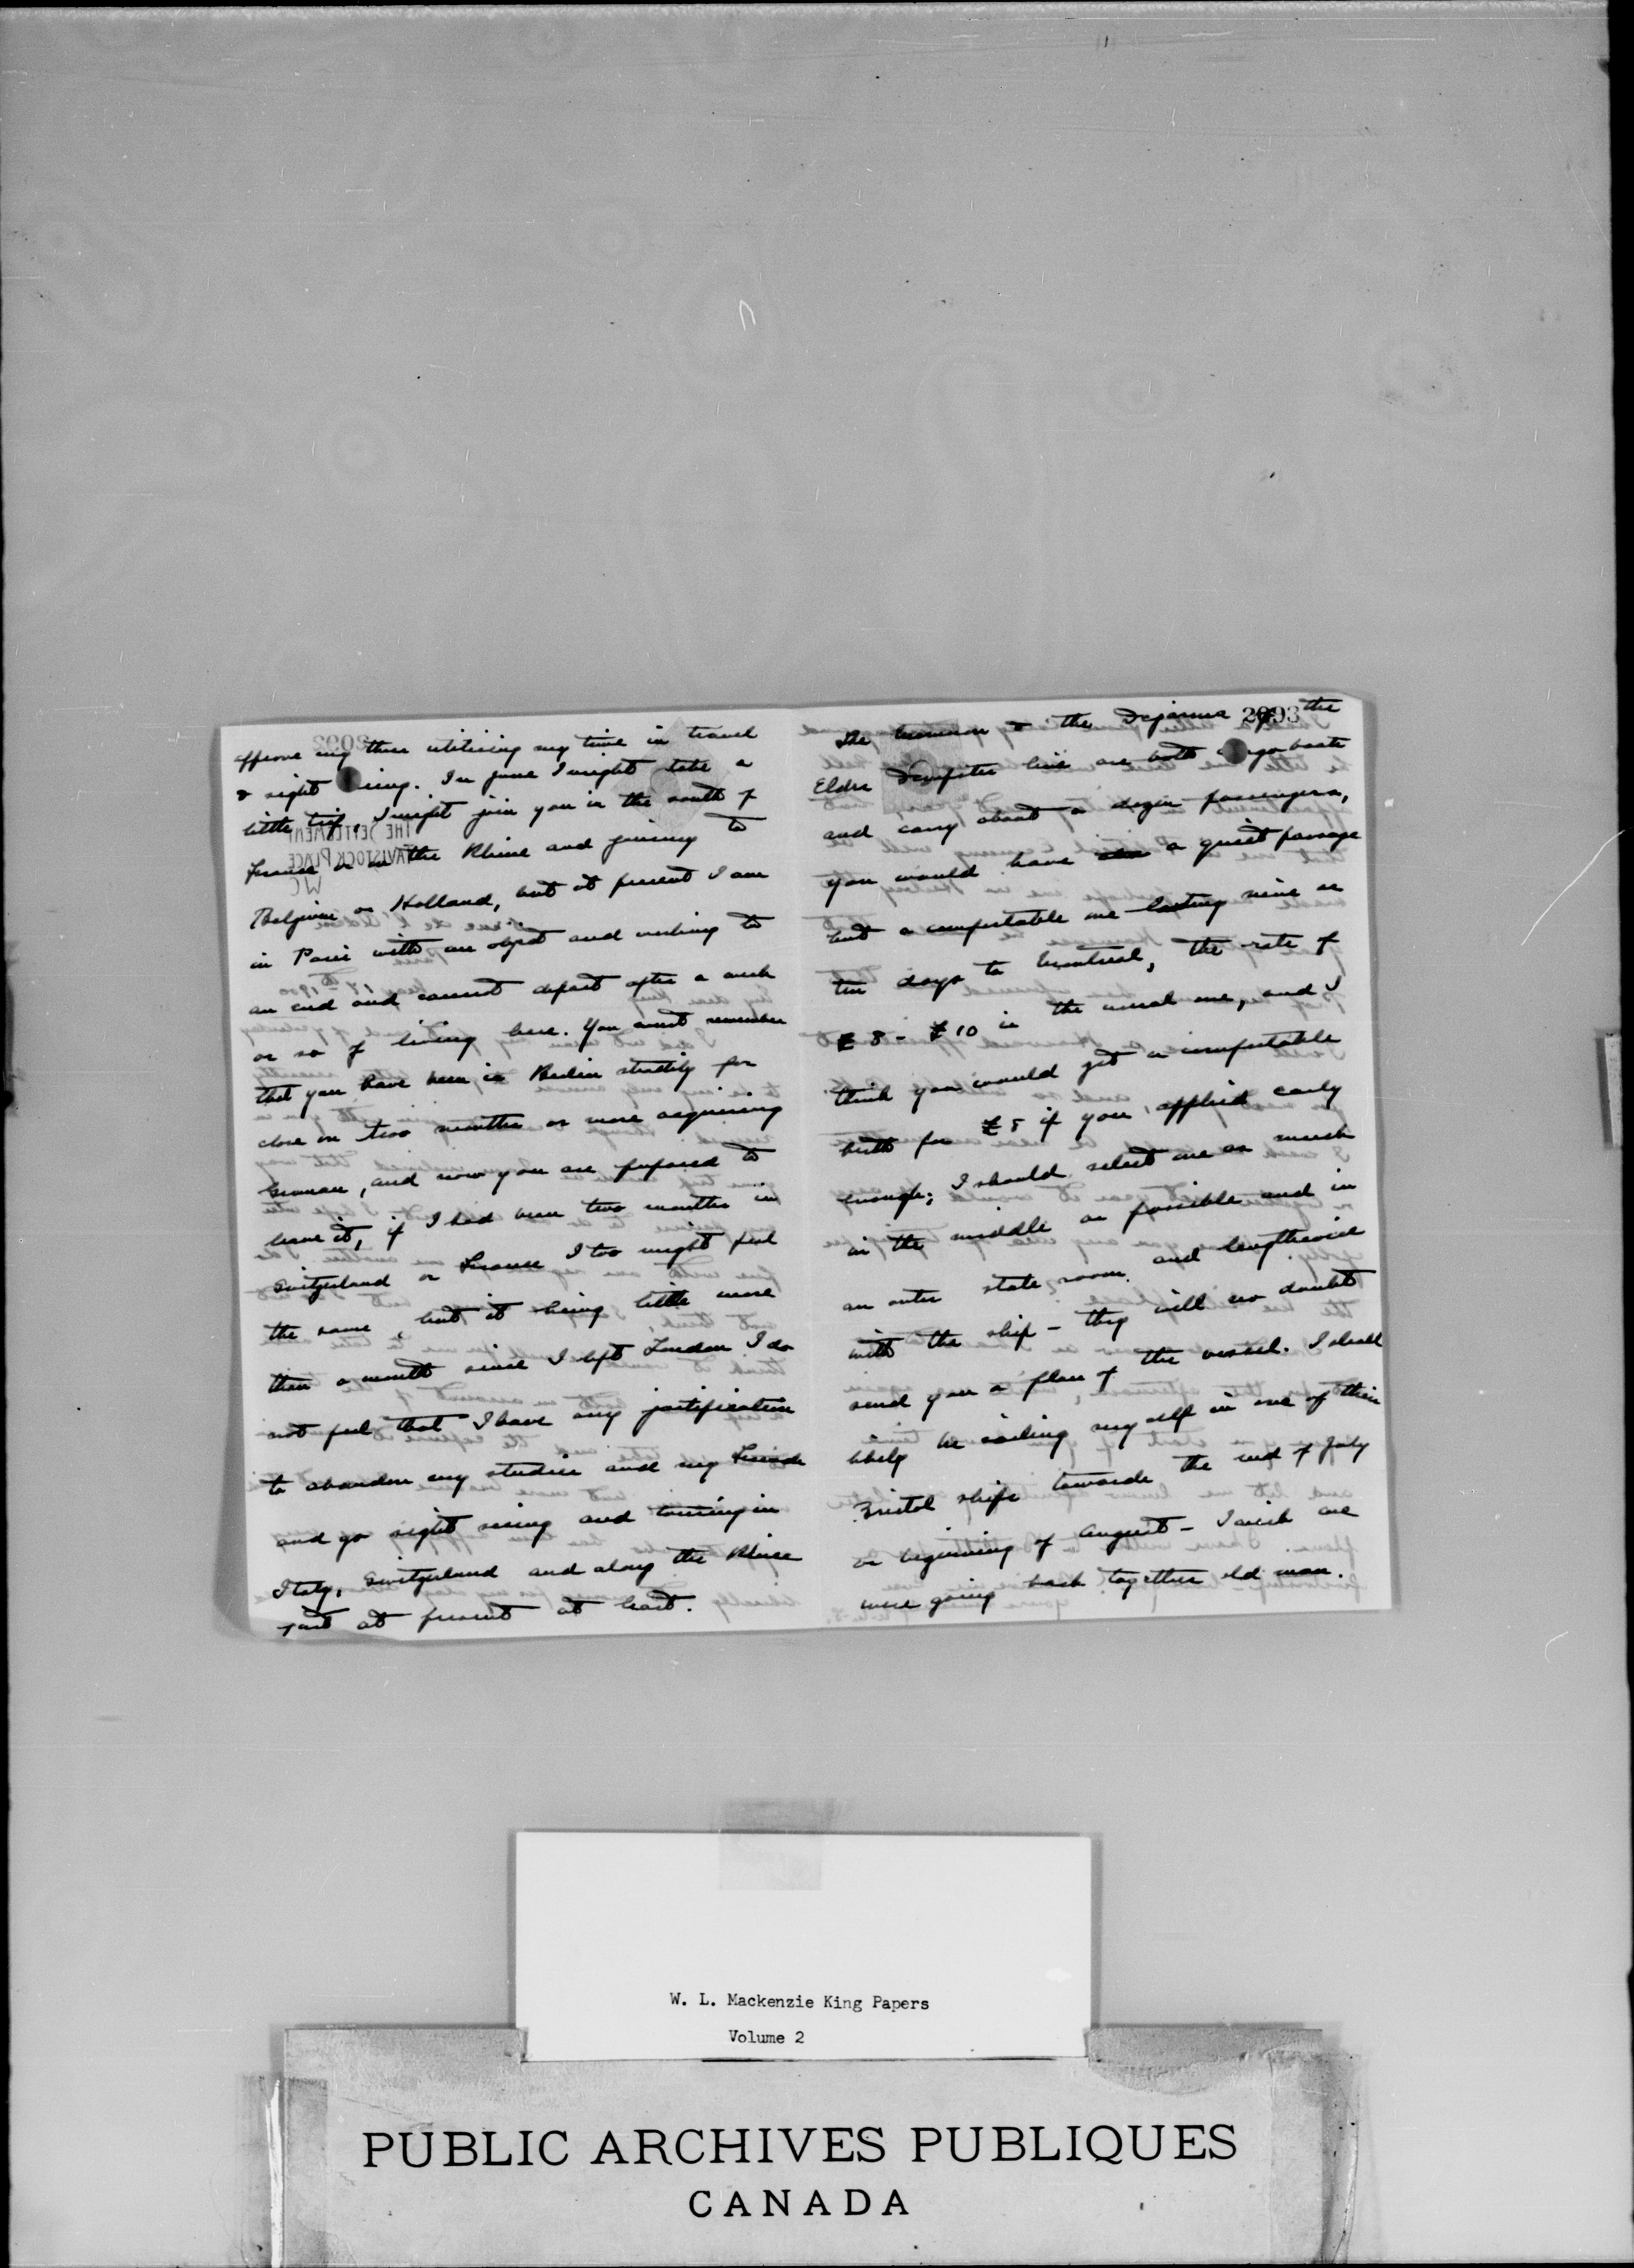 approve my thus utilising my time in travel
& sight ing. In June I might take a
little trip, I might join you in the south of
France or on the Rhine and journey to
Belgium or Holland, but at present I am
in Paris with an object and working to
an end and cannot depart after a week
or so of living here. You must remember
that you have been in Berlin strictly for
close on two months or more acquiring
German, and now you are prepared to
leave it, if I had been two months in
Switzerland or France I too might feel
the same, but it being little more
than a month since I left London I do
not feel that I have any justification
to abandon my studies and my French
and go sight seeing and touring in
Italy, Switzerland and along the Rhine
just at present at least.
2093
The Monmouth & the Degama of the
Elder Dempster line are both go boats
and carry about a dozen passengers,
you would have a quiet passage
but a comfortable one lasting nine or
ten days to Montreal, the rate of
£8 - £10 is the usual one, and I
think you would get a comfortable
berth for £8 if you applied early
enough; I should select one as much
in the middle as possible and in
an outer state room and lengthwise
with the ship - they will no doubt
send you a plan of the vessel. I shall
likely be sailing myself in one of their
Bristol ships towards the end of July
or beginning of August - I wish we
were going back together old man.
W. L. Mackenzie King Papers
Volume 2
PUBLIC ARCHIVES PUBLIQUES
CANADA